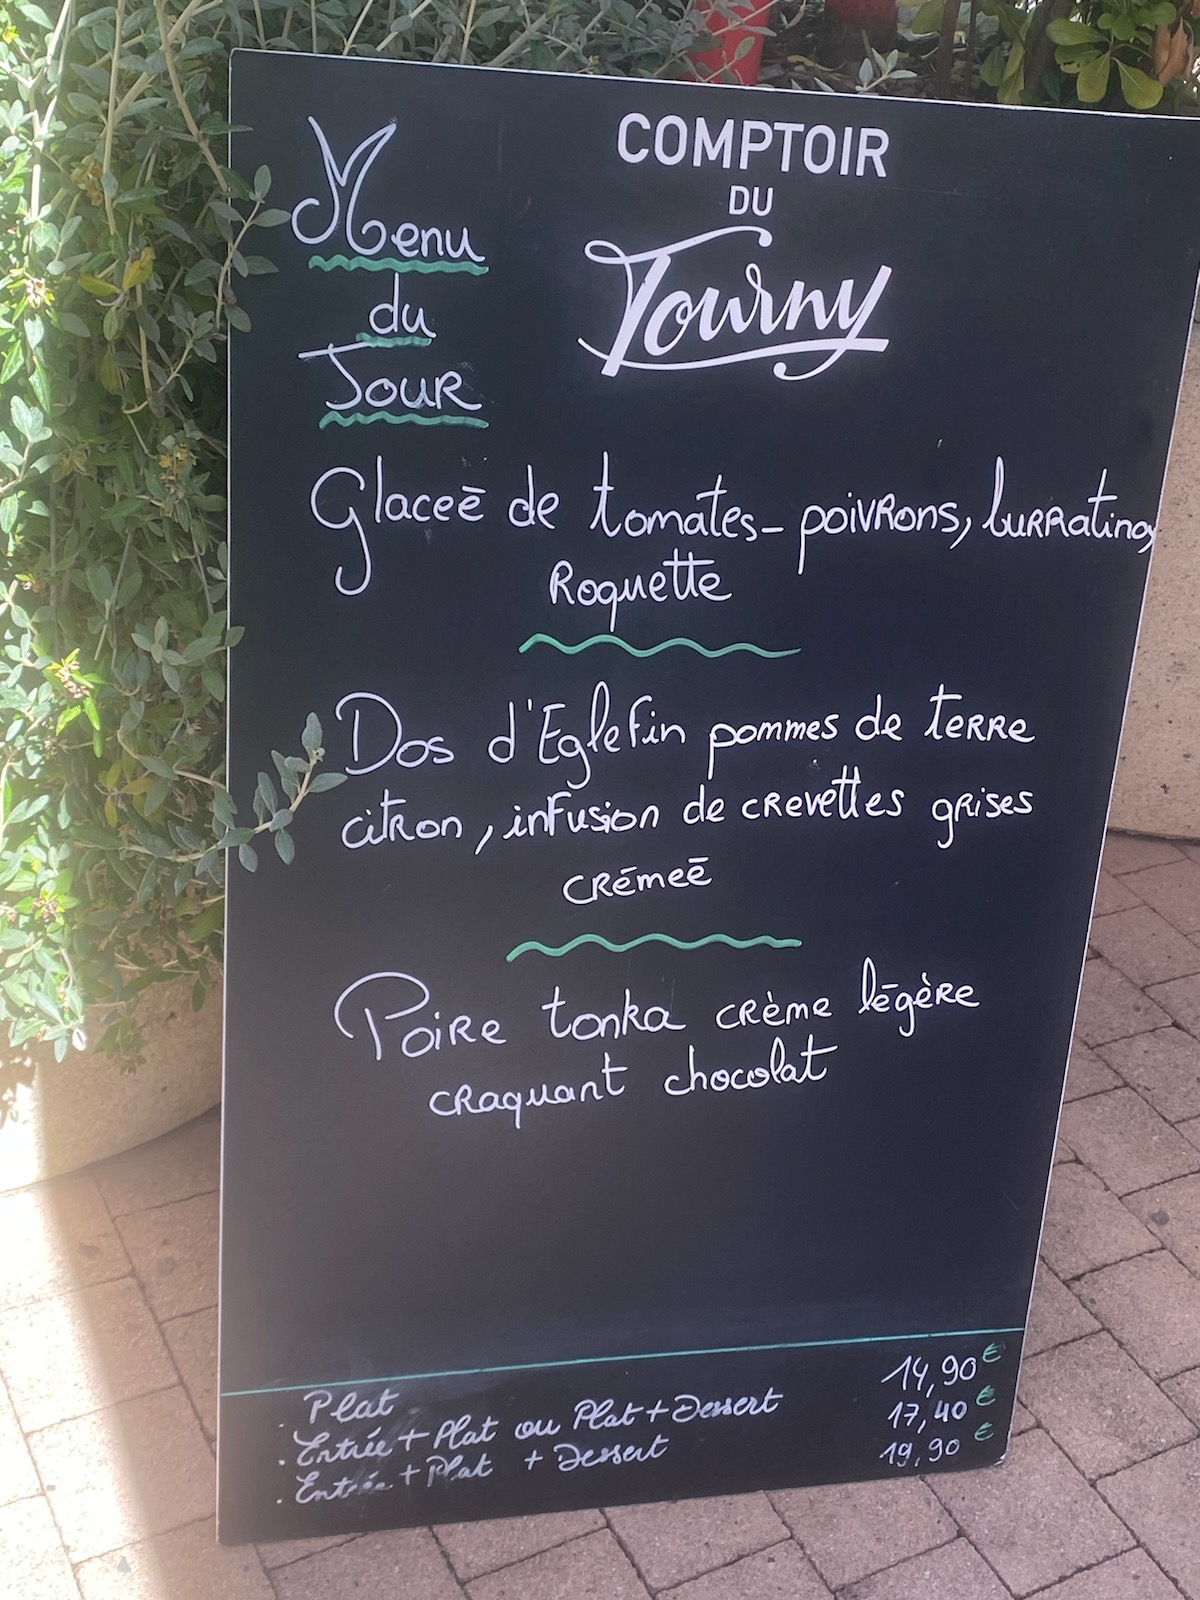 Menu
du
Jour
COMPTOIR
DU
Tourny
Glaceē de tomates - poivrons, burratina,
Roquette
Dos d'Eglefin pommes de terre
citron, infusion de crevettes grises
crēmeē
Poire tonka crème lēgère
craquant chocolat
. Plat 14,90€
. Entrée + Plat ou Plat + Dessert 17,40€
. Entrée + Plat + Dessert 19,90€